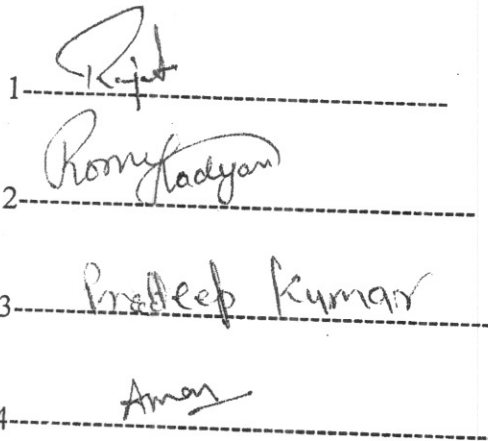 1 Rajat
2 Romy Kadyan
3 Pradeep Kumar
4 Aman